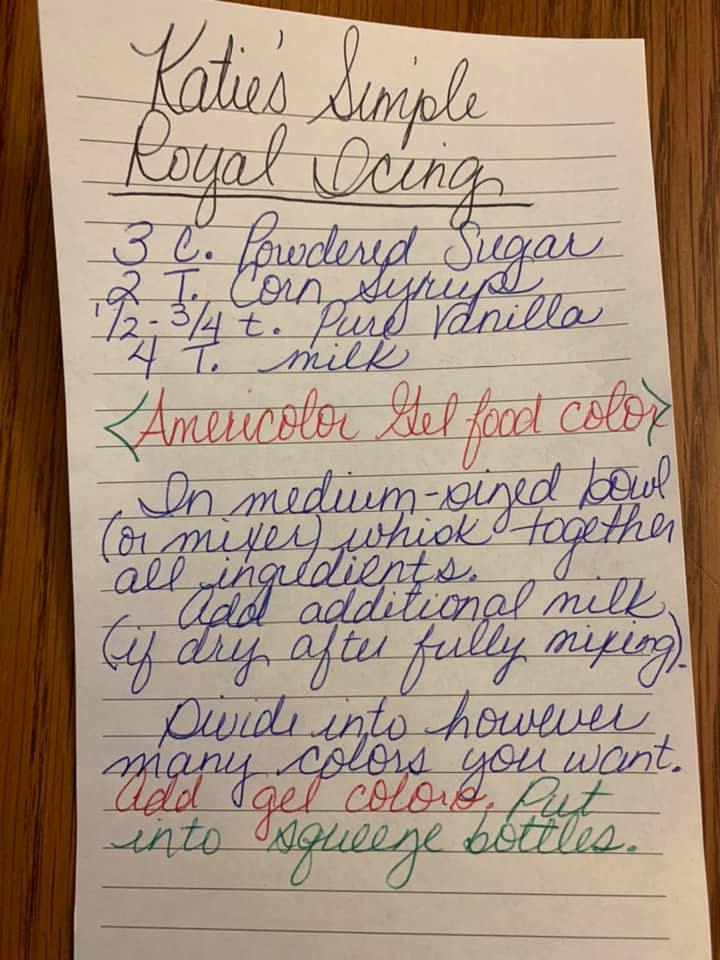 Katie's Simple
Royal Icing
3 C. Powdered Sugar
2 T. Corn Syrup
1/2 - 3/4 t. Pure Vanilla
4 T. milk
<Americolor Gel food color>
In medium-sized bowl
(or mixer) whisk together
all ingredients.
Add additional milk
(if dry after fully mixing).
Divide into however
many colors you want.
Add gel colors. Put
into squeeze bottles.